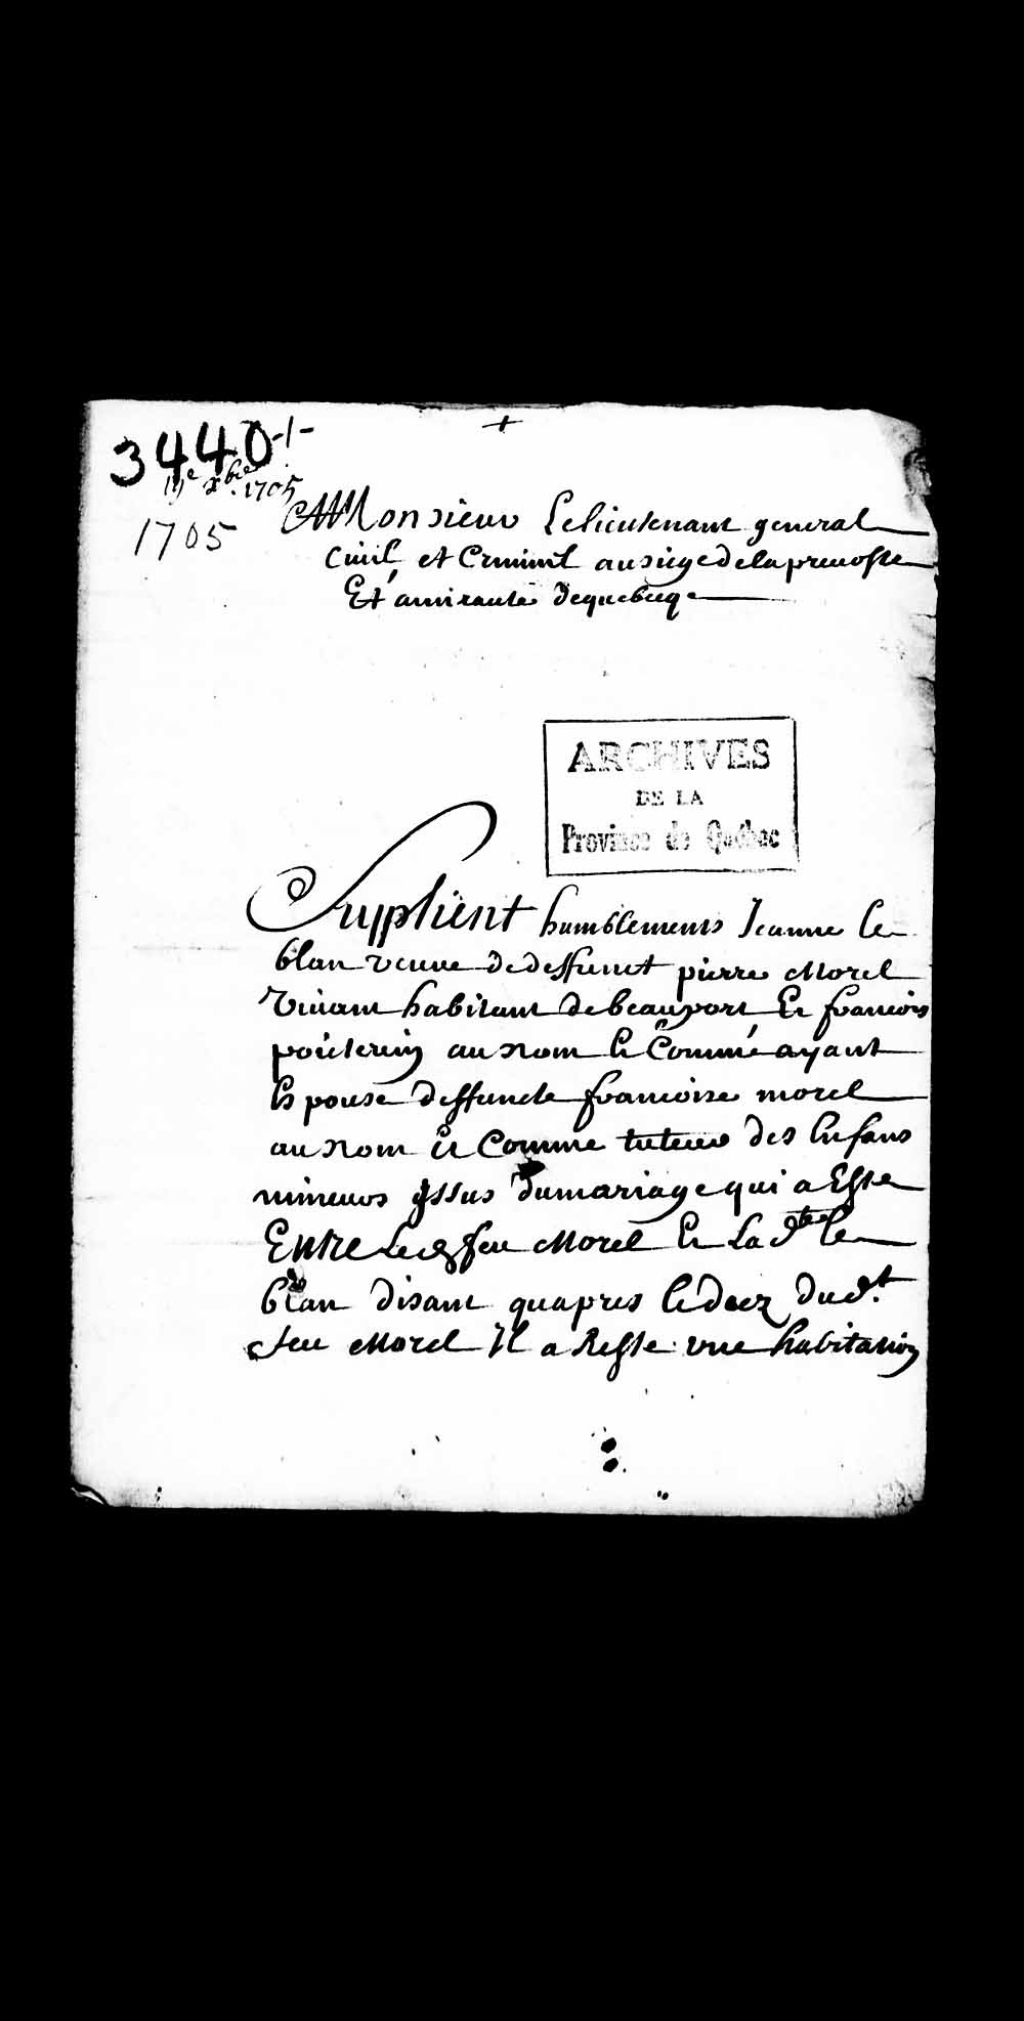 3440-1-
xbre 1705
1705
+
A Monsieur Le lieutenant general
Ciuil et Criminel au siege de la preuoste
Et amirauté de quebecq
ARCHIVES
DE LA
Province de Québec
Supplient humblement Jeanne le
blan veuue de deffunct pierre Morel
viuant habitant de beauport Et francois
poicteuin au nom Et Comme ayant
Espousé deffuncte francoise morel
au nom Et Comme tuteur des Enfans
mineurs yssus du mariage qui a Esté
Entre Led. feu Morel Et La dte le
blan disant quapres le decez dud.t
feu Morel Il a Resté vne habitation